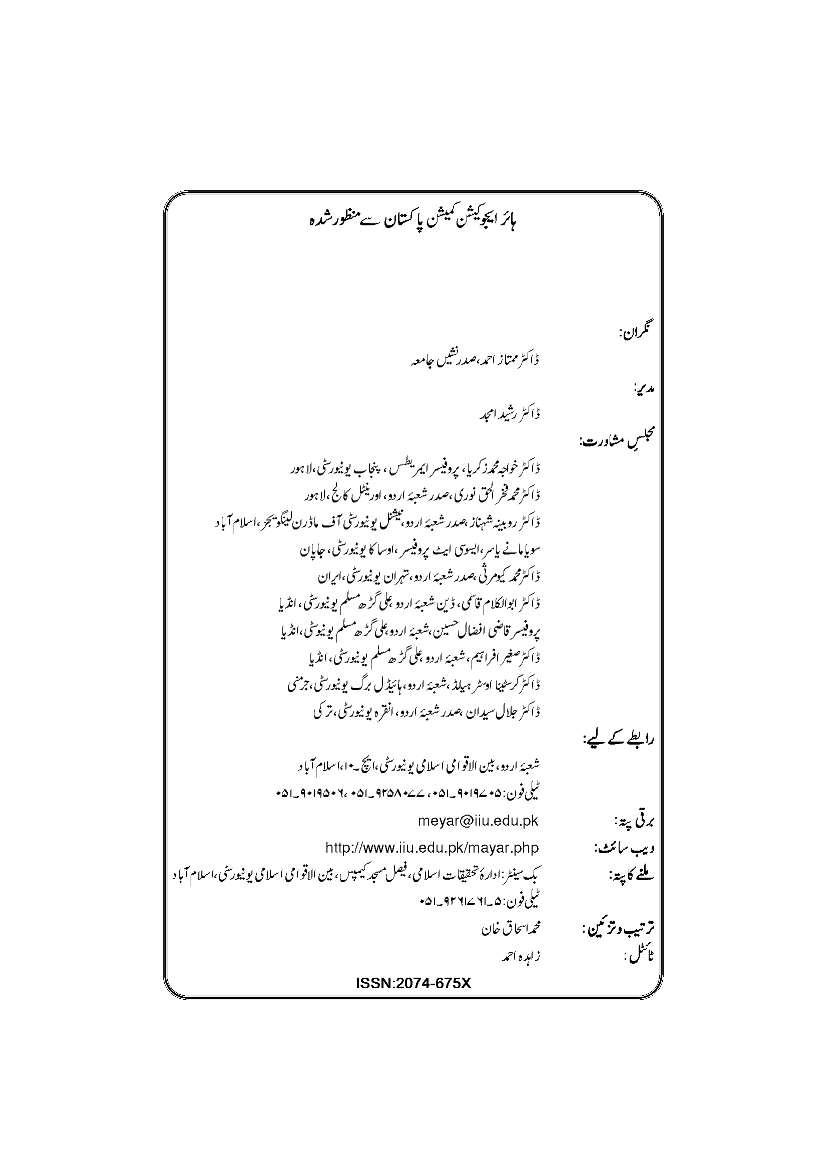 ہائر ایجوکیشن کمیشن پاکستان سے منظور شدہ
نگران:
ڈاکٹر ممتاز احمد،صدر نشیں جامعہ
مدیر:
ڈاکٹر رشید امجد
مجلسِ مشاورت:
ڈاکٹر خواجہ محمد زکریا، پروفیسر ایمریطس ، پنجاب یونیورسٹی،لاہور
ڈاکٹر محمد فخر الحق نوری،صدر شعبۂ اردو،اورینٹل کالج،لاہور
ڈاکٹر روبینہ شہناز،صدر شعبۂ اردو،نیشنل یونیورسٹی آف ماڈرن لینگویجز،اسلام آباد
سویامانے یاسر،ایسوسی ایٹ پروفیسر ،اوساکا یونیورسٹی، جاپان
ڈاکٹر محمد کیومرثی،صدر شعبۂ اردو،تہران یونیورسٹی،ایران
ڈاکٹر ابوالکلام قاسمی، ڈین شعبۂ اردو،علی گڑھ مسلم یونیورسٹی، انڈیا
پروفیسر قاضی افضال حسین،شعبۂ اردو،علی گڑھ مسلم یونیوسٹی،انڈیا
ڈاکٹر صغیر افراہیم، شعبۂ اردو،علی گڑھ مسلم یونیورسٹی، انڈیا
ڈاکٹر کرسٹینا اوسٹر ہیلڈ ،شعبۂ اردو،ہائیڈل برگ یونیورسٹی،جرمنی
ڈاکٹر جلال سیدان،صدر شعبۂ اردو، انقرہ یونیورسٹی،ترکی
رابطے کے لیے:
شعبۂ اردو، بین الاقوامی اسلامی یونیورسٹی،ایچ۔۱۰،اسلام آباد
ٹیلی فون: ۰۵۱۔۹۰۱۹۷۰۵، ۰۵۱۔۹۲۵۸۰۷۷ ،۰۵۱۔۹۰۱۹۵۰۶
برقی پتہ: meyar@iiu.edu.pk
ویب سائٹ: http://www.iiu.edu.pk/mayar.php
ملنے کا پتہ: بک سینٹر:ادارۂ تحقیقات اسلامی،فیصل مسجد کیمپس، بین الاقوامی اسلامی یونیورسٹی،اسلام آباد
ٹیلی فون: ۰۵۱۔۹۲۶۱۷۶۱۔۵
ترتیب و تزئین: محمد اسحاق خان
ٹائٹل: زاہدہ احمد
ISSN:2074-675X